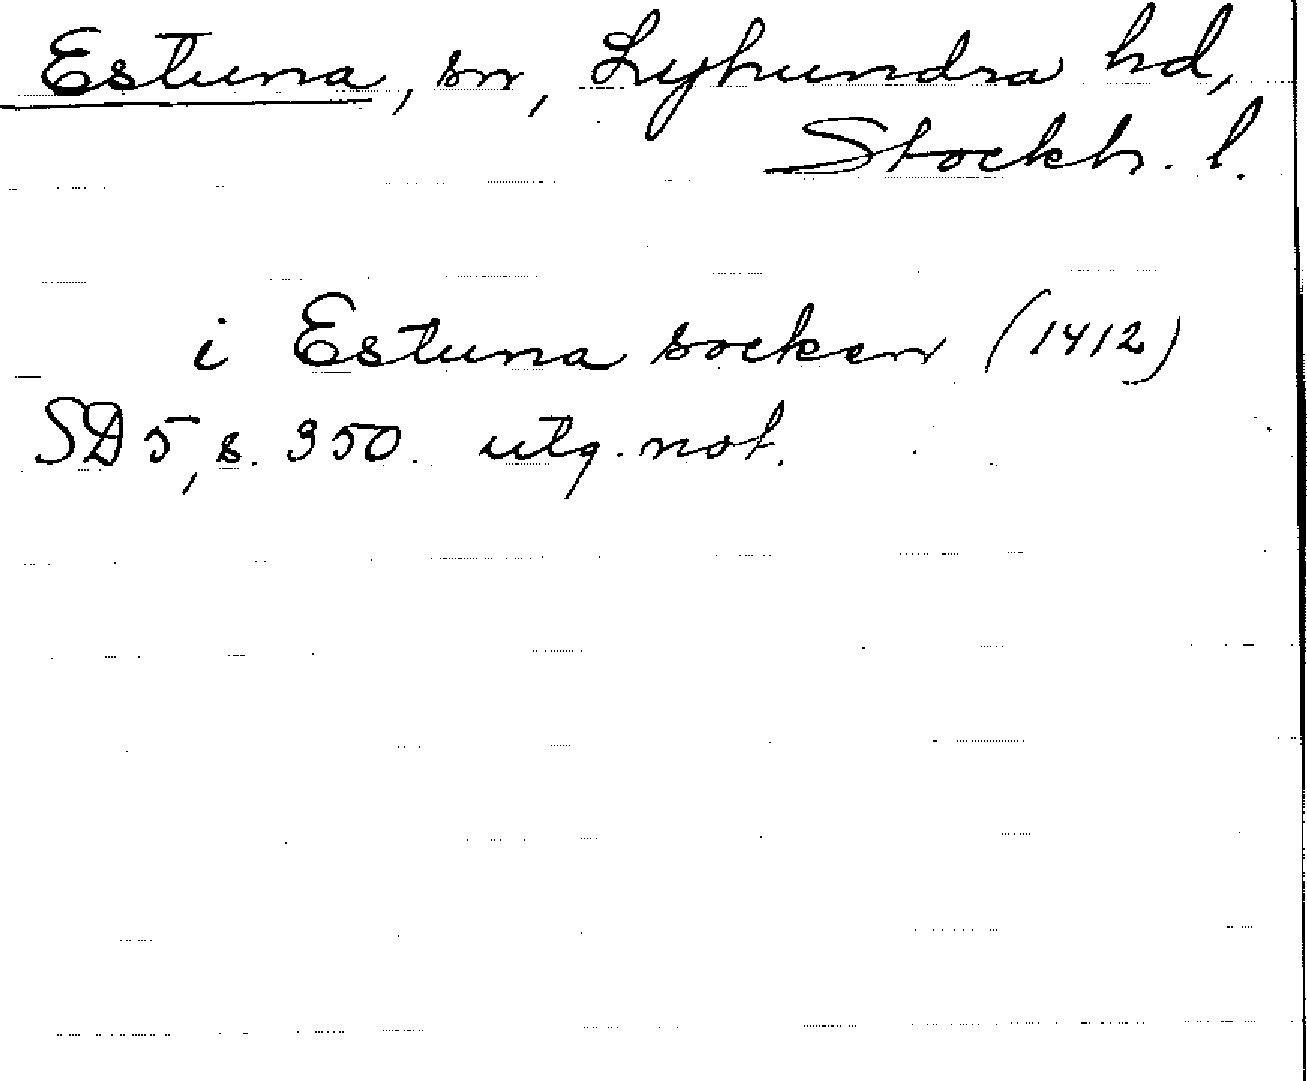 Estuna, sn, Lyhundra hd,
Stockh. l.
i Estuna socken (1412)
SD 5, s. 350. utg. not.